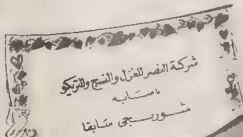 شركة النصر للغزل والنسج والتريكو
شوربجى سابقا